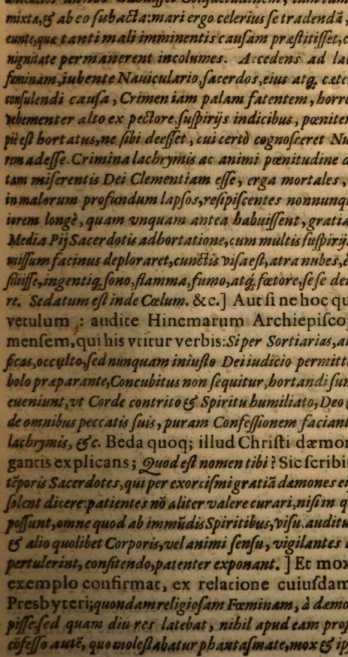 mixta, & ab eo subacta: mari ergo celerius se tradendā,
eunte, quæ tanti mali imminentis causam præstitisset, c
nignitate permanerent incolumes. Accedens ad la
fœminam, iubente Nauiculario, sacerdos, eius atq; cæte
consulendi causa, Crimen iam palam fatentem, horre
vehementer alto ex pectore, suspirijs indicibus, pœniter
pijest hortatus, ne sibi deesset, cui certò cognosceret Nu
rem adesse. Crimina lachrymis ac animi pœnitudine d
tam miserentis Dei Clementiam esse, erga mortales,
in malorum profundum lapsos, resipiscentes nonnunqu
iorem longè, quam vnquam antea habuissent, gratia
Media Pij Sacerdotis adhortatione, cum multis suspirijs
missum facinus deploraret, cunctis visa est, atra nubes, è
siluisse, ingentiq; sono, flamma, fumo, atq; fœtore, sese de
re. Sedatum est inde Cœlum. &c.] Aut si ne hoc qu
vetulum : audite Hincmarum Archiepisco
mensem, qui his vtitur verbis: Si per Sortiarias, a
ficas, occulto, sed nunquam iniusto Dei iudicio permitt
bolo præparante, Concubitus non sequitur, hortandi sun
eueniunt, vt Corde contrito & Spiritu humiliato, Deo
de omnibus peccatis suis, puram Confessionem faciant
lachrymis, &c. Beda quoq; illud Christi dæmon
gantis explicans; Quod est nomen tibi? Sic scribit
tēporis Sacerdotes, qui per exorcismi gratiā dæmones ei
solent dicere: patientes nō aliter valere curari, nisi m q
possunt, omne quod ab immūdis Spiritibus, visu. auditu
& alio quolibet Corporis, vel animi sensu, vigilantes
pertulerint, confitendo, patenter exponant. ] Et mox
exemplo confirmat, ex relatione cuiusdam
Presbyteri; quondam religiosam Fœminam, à demo
pisse: sed quam diu res latebat, nihil apud eam prof
cōfesso autē, quo molestabatur phantasmate, mox & ip